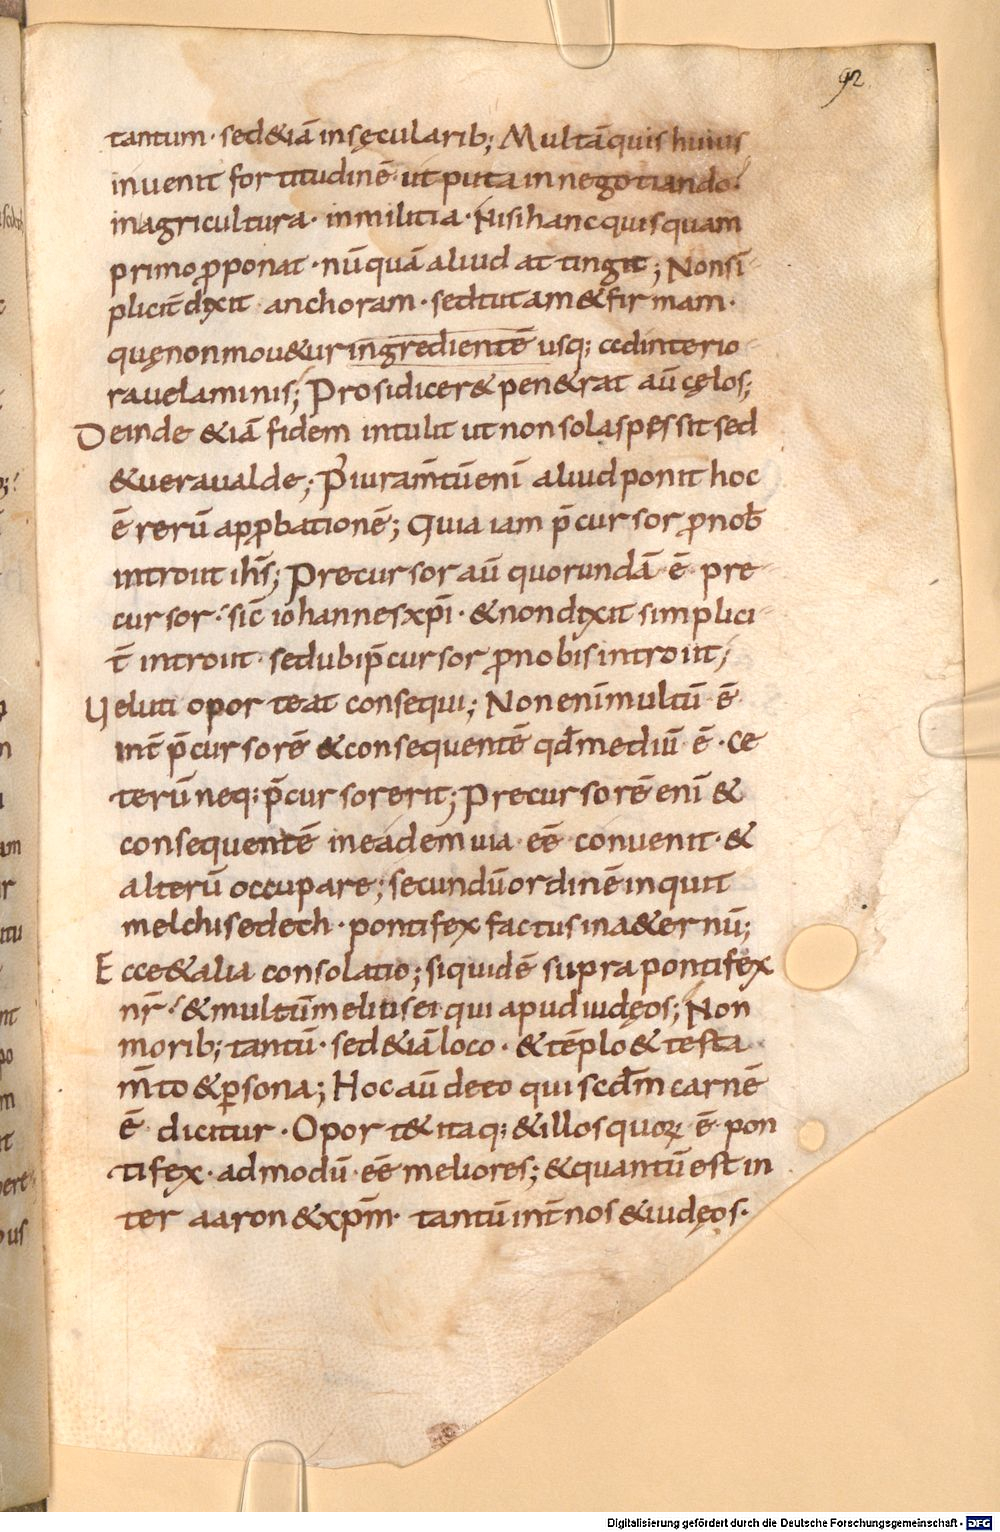 92
tantum · sed &iā in sęcularib; Multā quis huius
inuenit fortitudinē · ut puta in negotiando ·
in agricultura · in militia · Nisi hanc quisquam
primo p̄ponat · nūquā aliud attingit; Non sī-
plicit̄ dixit anchoram · sed tutam & firmam ·
quę non mou&ur ingredientē usq; ad interio-
ra uelaminis; Pro sī dicer& pen&rat aū cęlos;
Deinde &iā fidem intulit ut non sola spes sit sed
& uera ualde; P̄ iuram̄tū enī aliud ponit hoc
ē rerū app̄bationē; Quia iam p̄cursor p̄ nob̄
introiit ih̄s; Precursor aū quorundā ē pre-
cursor · sic̄ iohannes xp̄i · & non dixit simplici-
t̄ introiit · sed ubi p̄cursor p̄ nobis introiit;
Veluti oporteat consequi; Non enī multū ē
int̄ p̄cursorē & consequentē qd̄ mediū ē · Ce
terū neq; p̄cursor erit; Precursorē enī &
consequentē in eadem uia eē conuenit · &
alterū occupare; secundū ordinē inquit
melchisedech · pontifex factus in a&ernū;
Ecce & alia consolatio; siquidē supra pontifex
nr̄ · & multū melitis ei qui apud iudęos; Non
morib; tantū · sed &iā loco · & tēplo & testa
m̄to & p̱sona; Hoc aū de eo qui scd̄m carnē
ē dicitur · Oport& itaq; & illos quoꝝ ē pon
tifex · admodū eē meliores; & quantū est in
ter aaron & xp̄m · tantū int̄ nos & iudęos ·
Digitalisierung gefördert durch die Deutsche Forschungsgemeinschaft - DFG